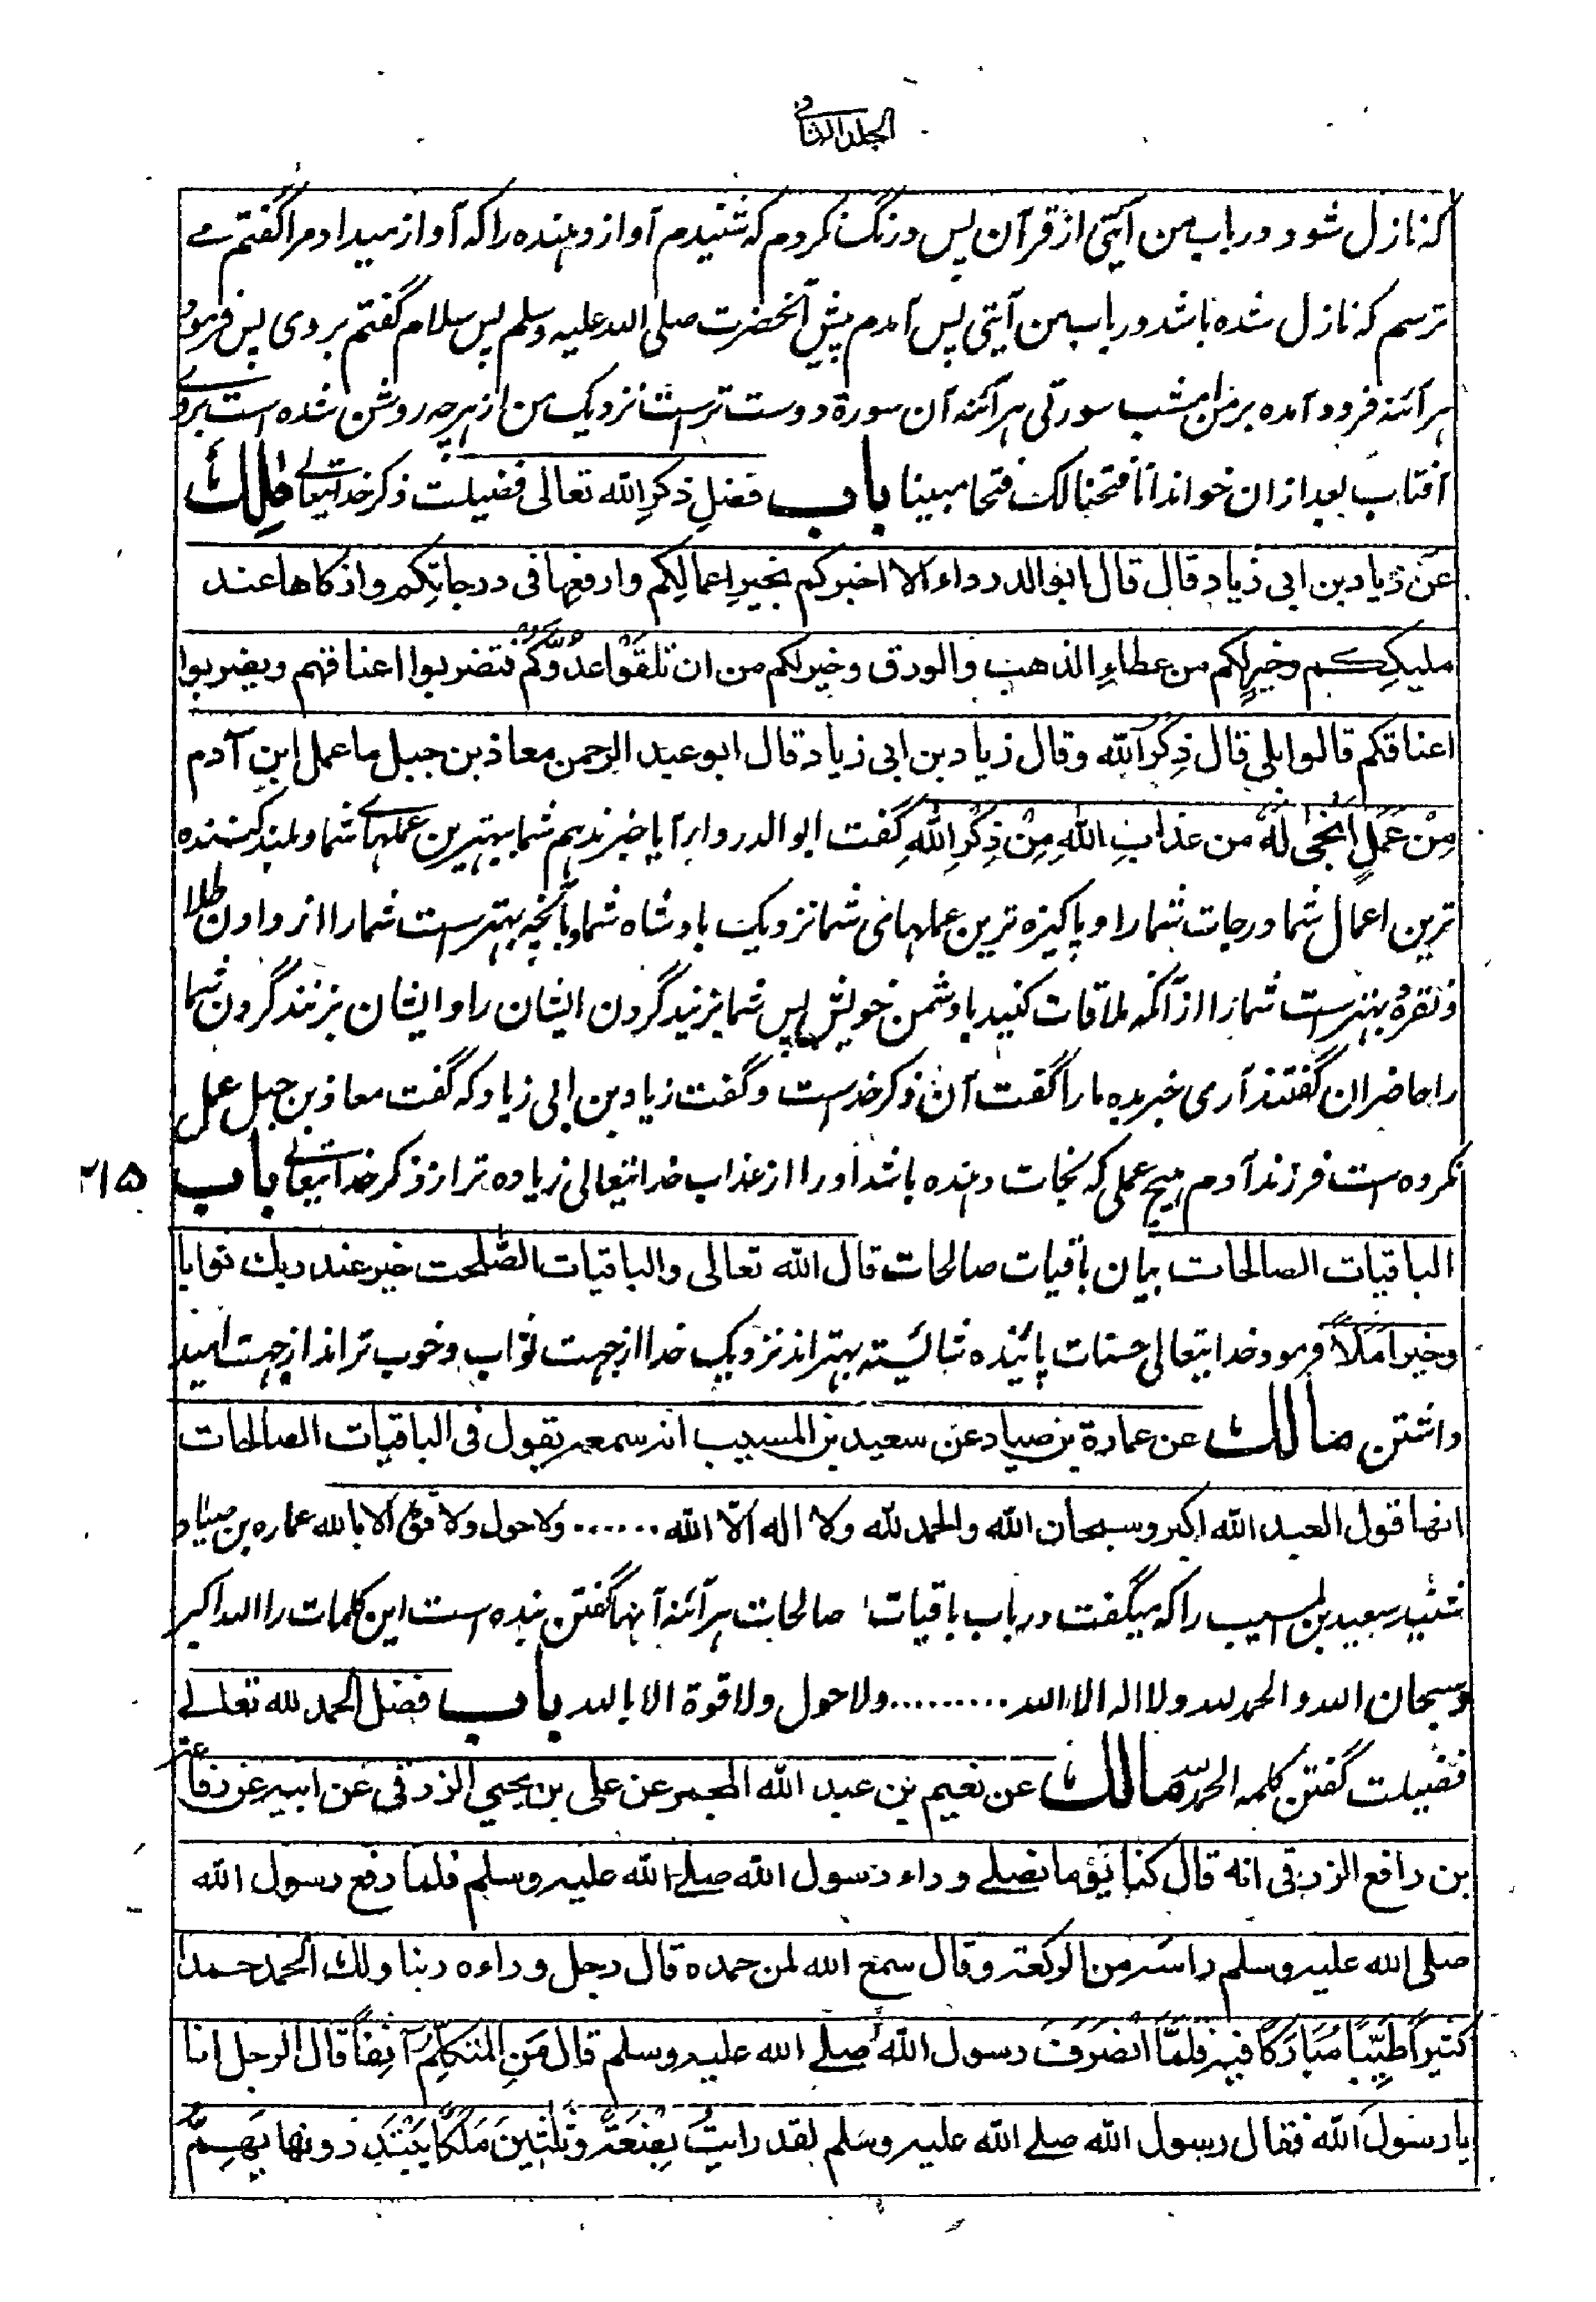 الجلد الثانی
که نازل شود در باب من آیتی از قرآن پس درنگ نکردم که شنیدم آواز دهنده را که آواز میداد مرا گفتم می
ترسم که نازل شده باشد در باب من آیتی پس آمدم پیش آنحضرت صلی الله علیه وسلم پس سلام گفتم بر وی پس فرمود
هر آئنه فرود آمده بر من امشب سورتی هر آئنه آن سورة دوست ترست نزدیک من از هر چه روشن شده است بروی
آفتاب بعد ازان خواند انا فتحنا لک فتحا مبینا باب فضل ذکر الله تعالی فضیلت ذکر خدایتعالی مالك
عن زیاد بن ابی زیاد قال قال ابو الدرداء الا اخبرکم بخیر اعمالکم وارفعها فی درجاتکم واذکاها عند
ملیککم وخیر لکم من عطاء الذهب والورق وخیر لکم من ان تلقوا عدوکم فتضربوا اعناقهم ویضربوا
اعناقکم قالوا بلی قال ذکر الله وقال زیاد بن ابی زیاد قال ابو عبد الرحمن معاذ بن جبل ما عمل ابن آدم
مِنْ عَمَلٍ اَنْجٰی لَهٗ من عذابِ اللهِ مِنْ ذِکْرِ اللهِ گفت ابو الدرداء آیا خبر ندهم شما بهترین عملهای شما و بلند کننده
ترین اعمال شما درجات شما را و پاکیزه ترین عملهای شما نزدیک بادشاه شما و بآنچه بهترست شما را از دادن طلا
و نقره و بهترست شما را از آنکه ملاقات کنید با دشمن خویش پس شما بزنید گردن ایشان را و ایشان بزنند گردن شما
را حاضران گفتند آری خبر بده ما را گفت آن ذکر خداست و گفت زیاد بن ابی زیاد که گفت معاذ بن جبل عمل
نکرده است فرزند آدم هیچ عملی که نجات دهنده باشد او را از عذاب خدایتعالی زیاده تر از ذکر خدایتعالی باب
۲۱۵
الباقیات الصالحات بیان باقیات صالحات قال الله تعالی والباقیات الصّٰلحٰت خیر عند ربك ثوابا
وخیر املا فرمود خدایتعالی حسنات پائنده شائسته بهتر اند نزدیک خدا از جهت ثواب و خوب تر اند از جهت امید
داشتن مالك عن عمارة بن صیاد عن سعید بن المسیب انه سمعه یقول فی الباقیات الصالحات
انها قول العبد الله اکبر وسبحان الله والحمد لله ولا اله الا الله ....... ولا حول ولا قوة الا بالله عماره بن صیاد
شنید سعید بن المسیب را که میگفت در باب باقیات صالحات هر آئنه آنها گفتن بنده است این کلمات را الله اکبر
وسبحان الله والحمد لله ولا اله الا الله ......... ولا حول ولا قوة الا بالله باب فضل الحمد لله تعالی
فضیلت گفتن کلمه الحمد لله مالك عن نعیم بن عبد الله المجمر عن علی بن یحیی الزرقی عن ابیه عن رفاعة
بن رافع الزرقی انه قال کنا یوما نصلی وراء رسول الله صلی الله علیه وسلم فلما رفع رسول الله
صلی الله علیه وسلم راسه من الرکعة وقال سمع الله لمن حمده قال رجل وراءه ربنا ولك الحمد حمدا
کثیراً طَیِّبًا مُبَارَکًا فیه فلمَّا انْصَرَفَ رسول الله صلی الله علیه وسلم قال مَنِ المتکلِّمُ آنِفًا قال الرجل انا
یا رسولَ الله فقال رسول الله صلی الله علیه وسلم لقد رایتُ بِضْعَةً وَّثلٰثِینَ مَلَکًا یَبْتَدِرُونها اَیُّهم